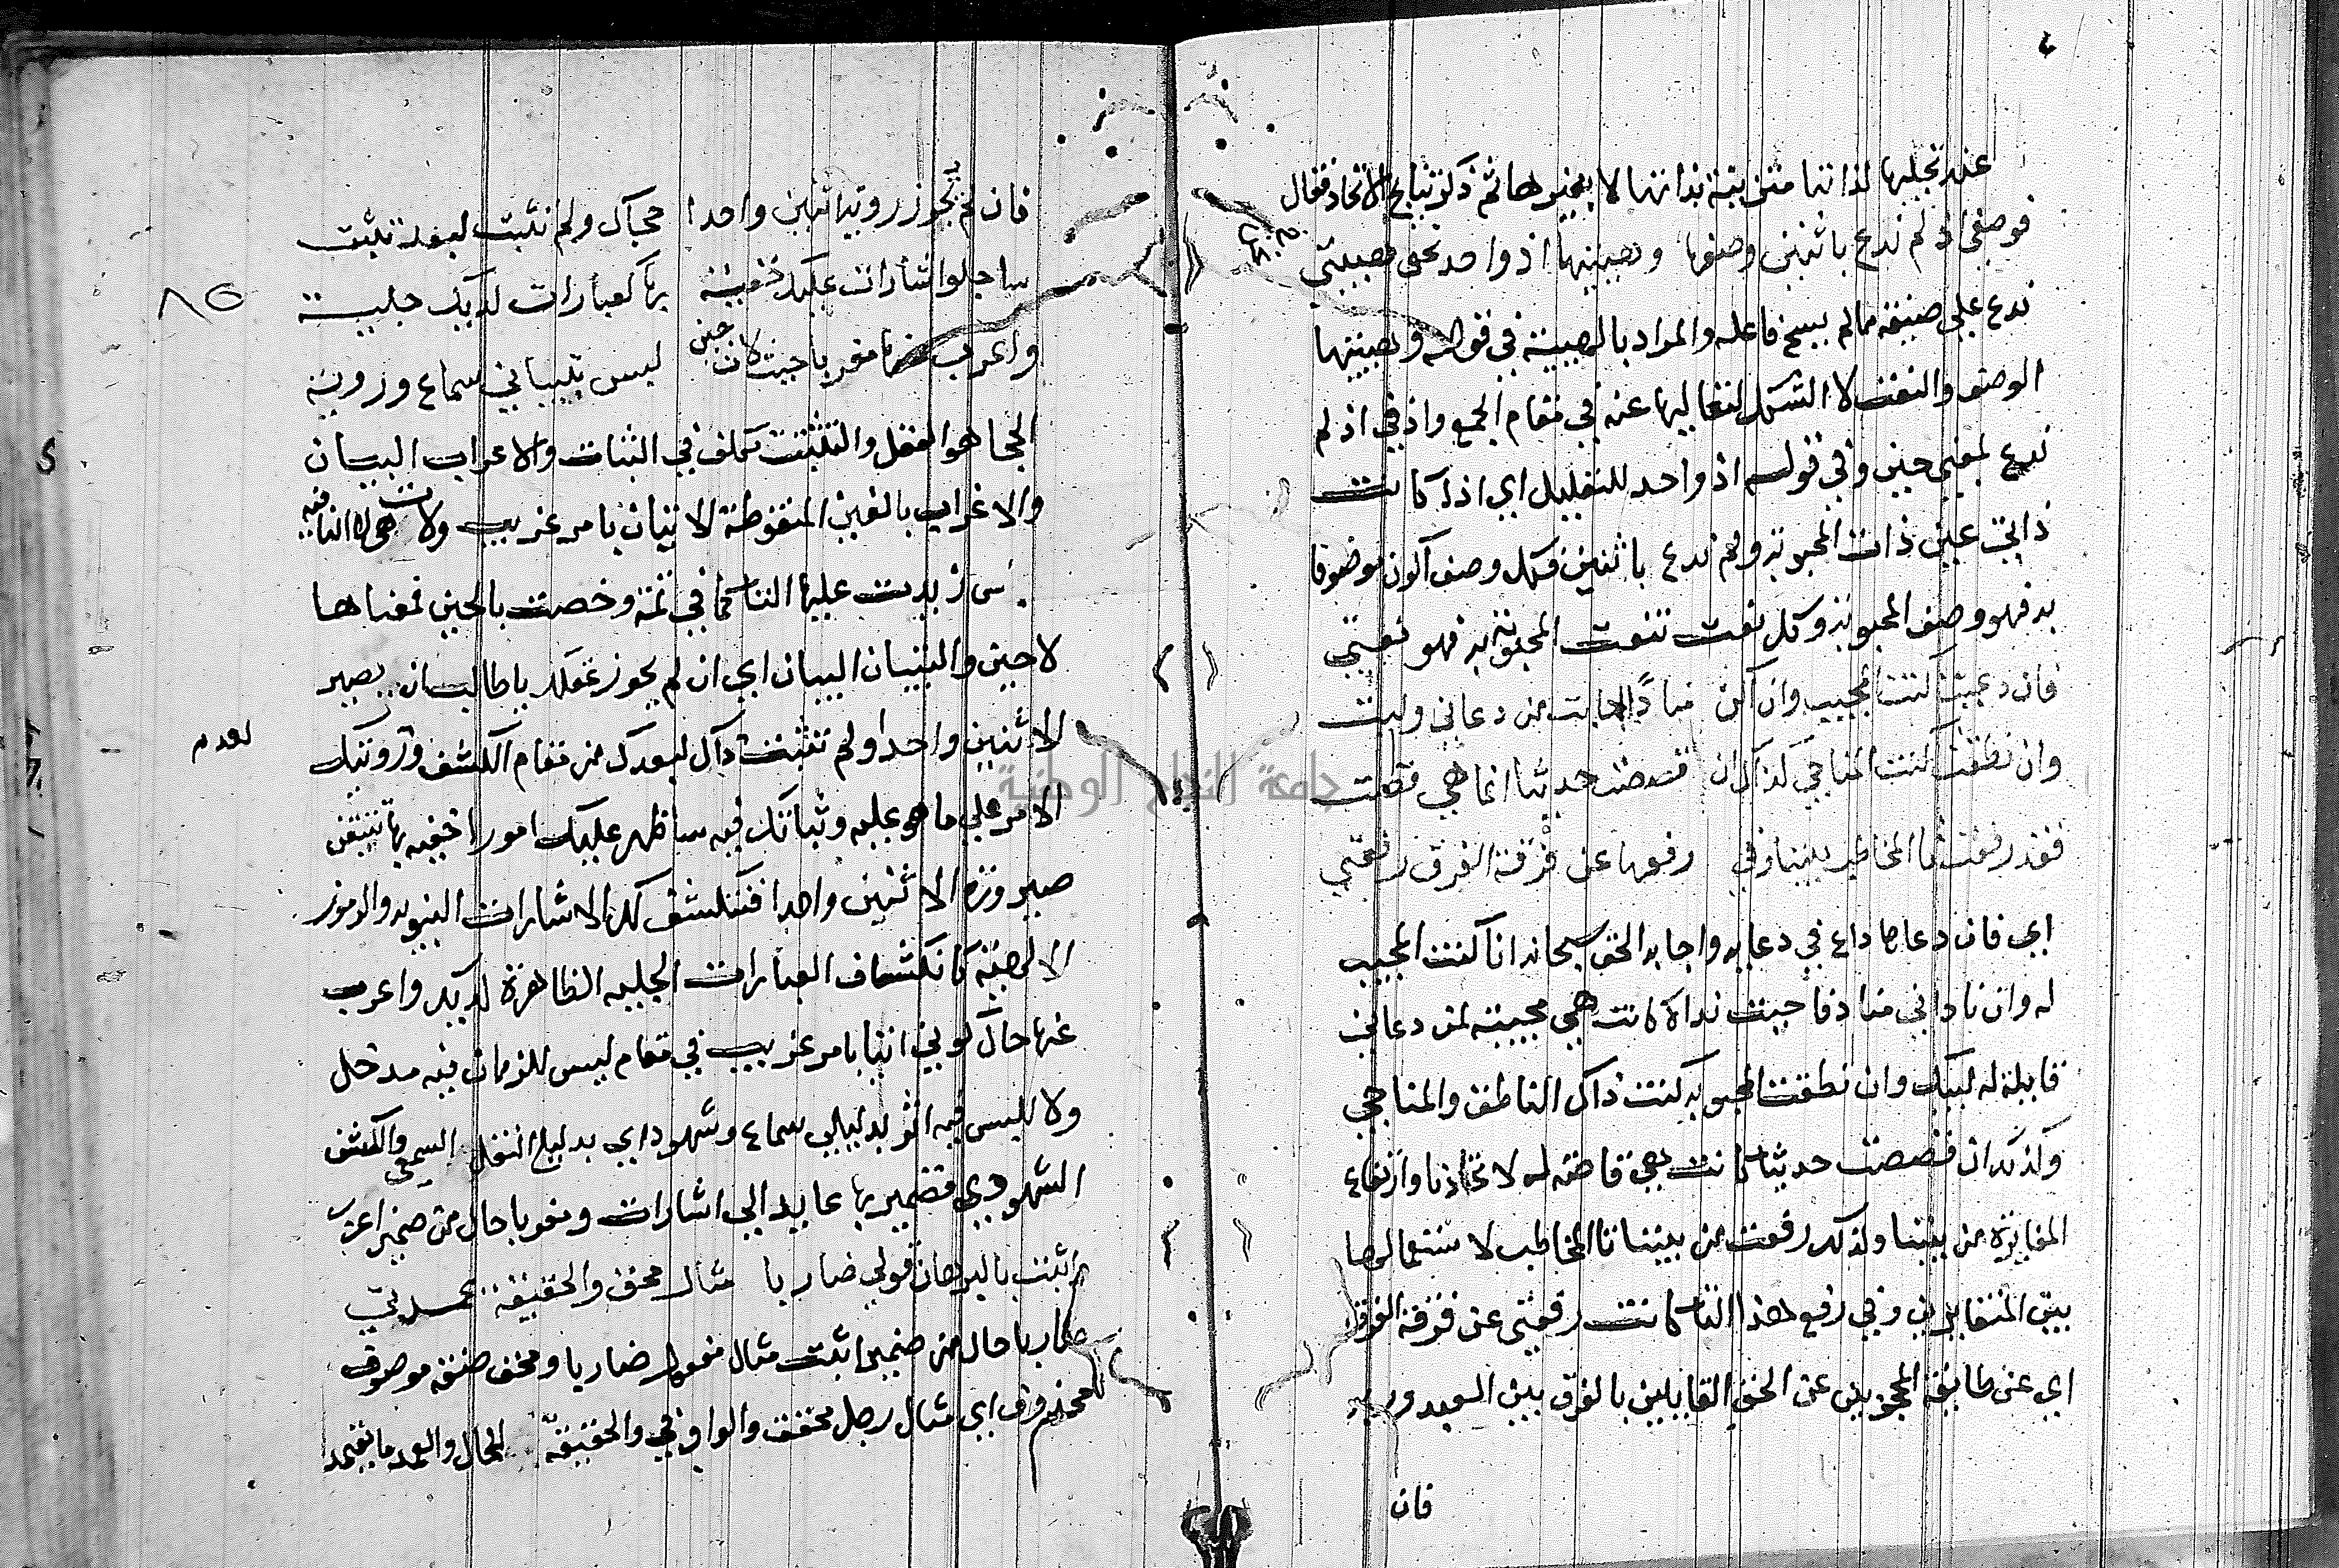 عند تجليها لذاتنا متزينة بذاتها لا بغيرها ثم ذكر نتايج الاتحاد فقال
فوصفي اذ لم ندع باثنين وصفها وهيئتها اذ واحد نحن هيئتي
ندع على صيغة مالم يسم فاعله والمراد بالهيئة في قوله وهيئتها
الوصف والنعت لا الشكل لتعاليها عنه في مقام الجمع واذ في اذ لم
ندع بمعنى حين وفي قوله اذ واحد للتعليل اي اذا كانت
ذاتي عين ذات المحبوبة ولم ندع باثنين فكل وصف اكون موصوفا
به فهو وصف المحبوبة وكل نعت تنعت المحبوبة به فهو نعتي
فان دعيت كنت المجيب وان اكن منادًا اجابت من دعاني ولبت
وان نطقت كنت المناجي كذاك ان قصصت حديثا انما هي قصت
فقد رفعت تا المخاطب بيننا وفي رفعها عن فرقة الفرق رفعتي
اي فان دعاها داع في دعايه واجابه الحق سبحانه انا كنت المجيب
له وان ناداني مناد فاجبت نداه كانت هي مجيبة لمن دعاني
قايلة له لبيك وان نطقت المحبوبه كنت ذاك الناطق والمناجي
وكذلك ان قصصت حديثا كانت هي قاصة له لاتحادنا وارتفاع
المغايرة من بيننا ولذلك رفعت من بيننا تا المخاطب لاستعمالها
بين المتغايرين وفي رفع هذا التا كانت رفعتي عن فرقة الفرق
اي عن طايفة المحجوبين عن الحق القايلين بالفرق بين العبد وربه
فان
فان لم يجوز روية اثنين واحدا حجاك ولم تثبت لبعد تثبت
ساجلو اشارات عليك خفية بها كعبارات لديك جلية
واعرب عنها مغربا حيث لات حين لبس بتبياني سماع وروية
الحجا هو العقل والتثبت تكلف في الثبات والاعراب البيان
والاغراب بالغين المنقوطة الاتيان بامر غريب ولات هي لا النافيه
زيدت عليها التا كما في ثمة وخصت بالحين فمعناها
لا حين والتبيان البيان اي ان لم يجوز عقلك يا طالب ان يصير
الاثنين واحدا ولم تثبت ذاك لبعدك من مقام الكشف ورويتك
الامر علي ما هو عليه وثباتك فيه ساظهر عليك امورا خفيه بها تتيقن
صيرورة الاثنين واحدا فتنكشف لك الاشارات النبويه والرموز
الالهية كانكشاف العبارات الجليه الظاهرة لديك واعرب
عنها حال كوني اتيا بامر غريب في مقام ليس للزمان فيه مدخل
ولا للبس فيه اثر بدليلي سماع وشهود اي بدليل النقل السمعي والكشف
الشهودي فضمير بها عايد الي اشارات ومغربا حال من ضمير اعرب
واثبت بالبرهان قولي ضاربا مثال محق والحقيقة عمدتي
ضاربا حال من ضمير اثبت مثال مفعول ضاربا ومحق صفة موصوف
محذوف اي مثال رجل محقق والواو في والحقيقة للحال والعمد ما يعتمد